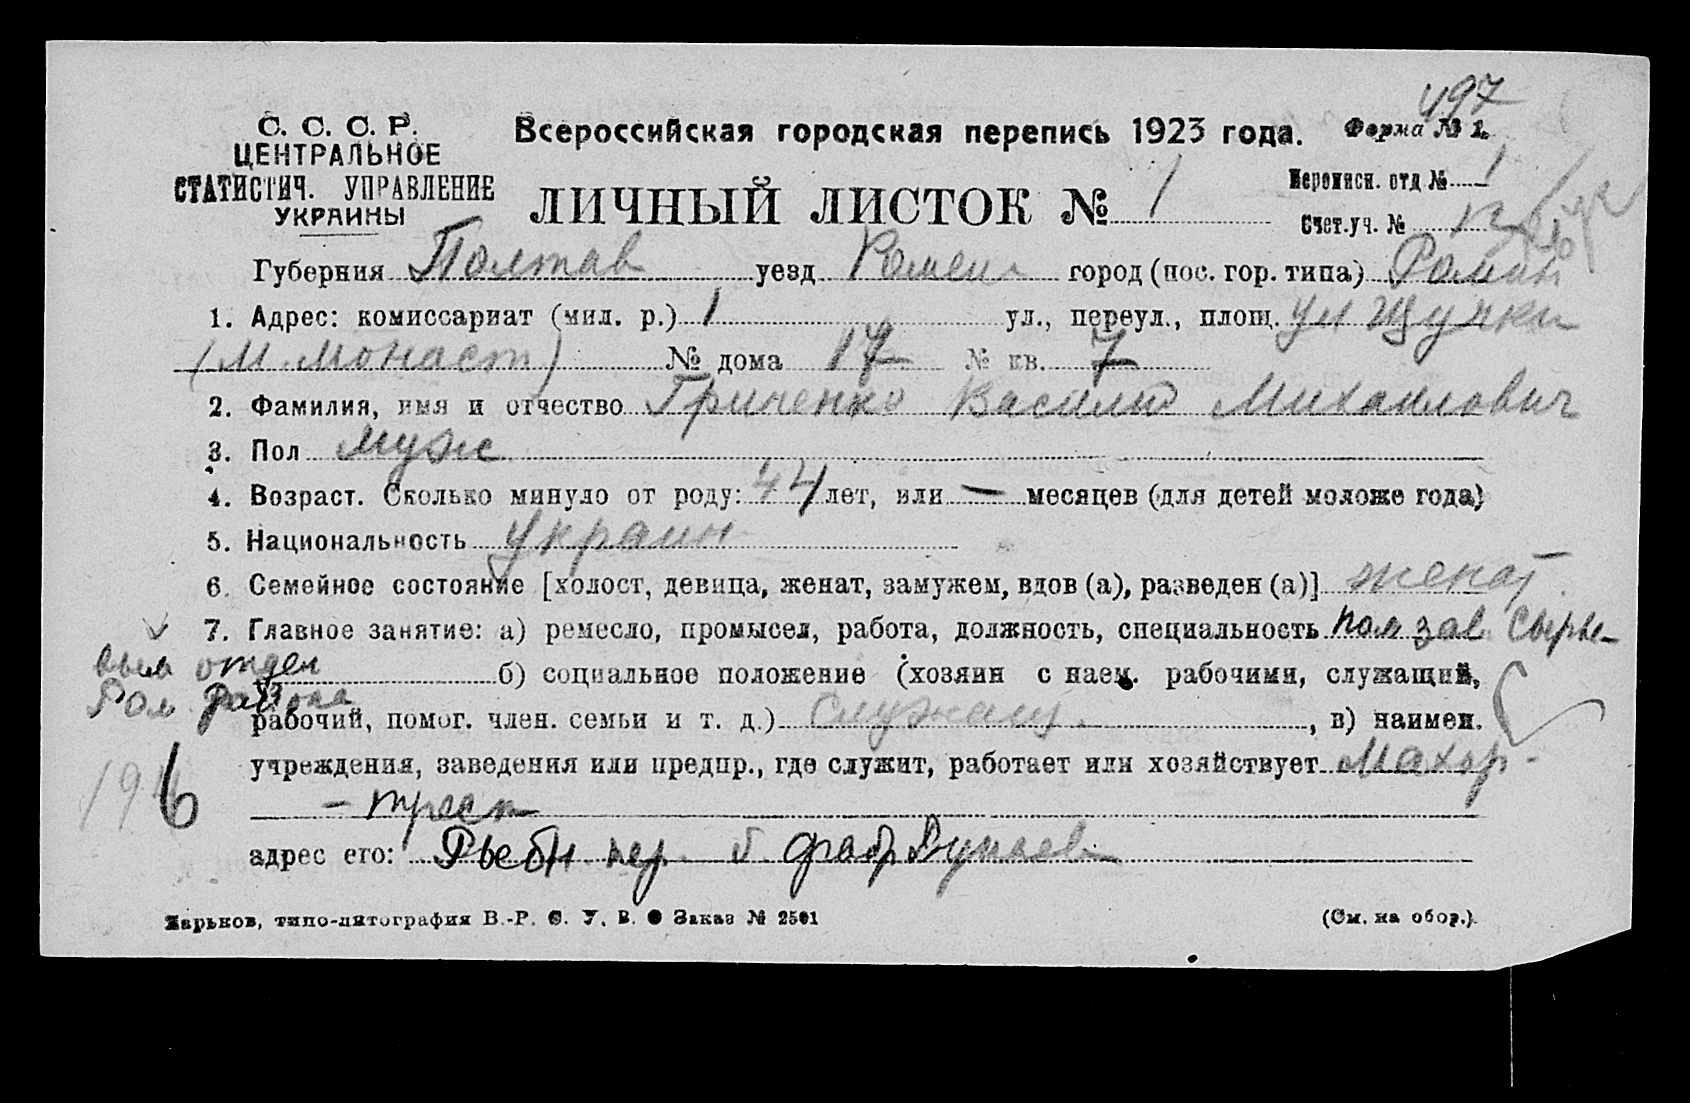 497
С. С. С. Р.
ЦЕНТРАЛЬНОЕ
СТАТИСТИЧ. УПРАВЛЕНИЕ
УКРАИНЫ
Всероссийская городская перепись 1923 года. Форма № 1.
ЛИЧНЫЙ ЛИСТОК № 1
Переписн. отд № 1
Счет.уч. № 13
Губерния Полтав уезд Ромен город (пос. гор. типа) Ромны
1. Адрес: комиссариат (мил. р.) 1 ул., переул., площ. ул Щупки
(М. Монаст) № дома 17 № кв. 7
2. Фамилия, имя и отчество Гриченко Василий Михаилович
3. Пол муж
4. Возраст. Сколько минуло от роду: 44 лет, или — месяцев (для детей моложе года)
5. Национальность Украин
6. Семейное состояние [холост, девица, женат, замужем, вдов (а), разведен (а)] женат
7. Главное занятие: а) ремесло, промысел, работа, должность, специальность пом зав Сырье-
вым отдел б) социальное положение (хозяин с наем. рабочими, служащий,
Ром района
рабочий, помог. член. семьи и т. д.) Служащ. , в) наимен.
учреждения, заведения или предпр., где служит, работает или хозяйствует Махор-
- трест
адрес его: пер. б. фабр
Харьков, типо-литография В.-Р. С. У. В. Заказ № 2501
(См. на обор.).